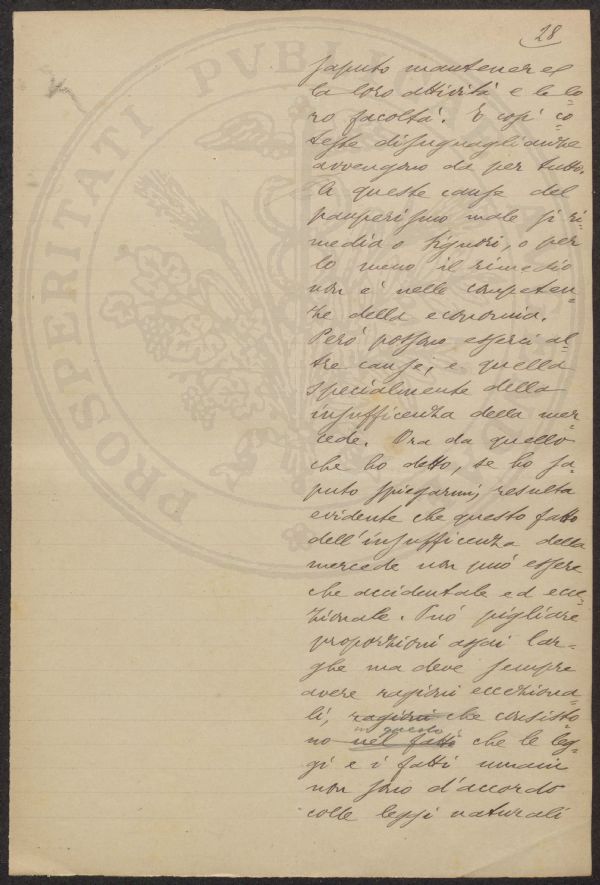 28
saputo mantenere
la loro attività e le lo=
ro facoltà. E così co=
teste disuguaglianze
avvengono da per tutto.
A queste cause del
pauperismo male si ri=
media o Signori, o per
lo meno il rimedio
non è nelle competen=
ze della economia.
Però possono esserci al=
tre cause, e quella
specialmente della
insufficenza della mer=
cede. Ora da quello
che ho detto, se ho sa=
puto spiegarmi, resulta
evidente che questo fatto
dell'insufficenza della
mercede non può essere
che accidentale ed ecce=
zionale. Può pigliare
proporzioni assai lar=
ghe ma deve sempre
avere ragioni ecceziona=
li, ragioni che consisto=
in questo
no nel fatto che le leg=
gi e i fatti umani
non sono d'accordo
colle leggi naturali
PROSPERITATI PVBLICAE